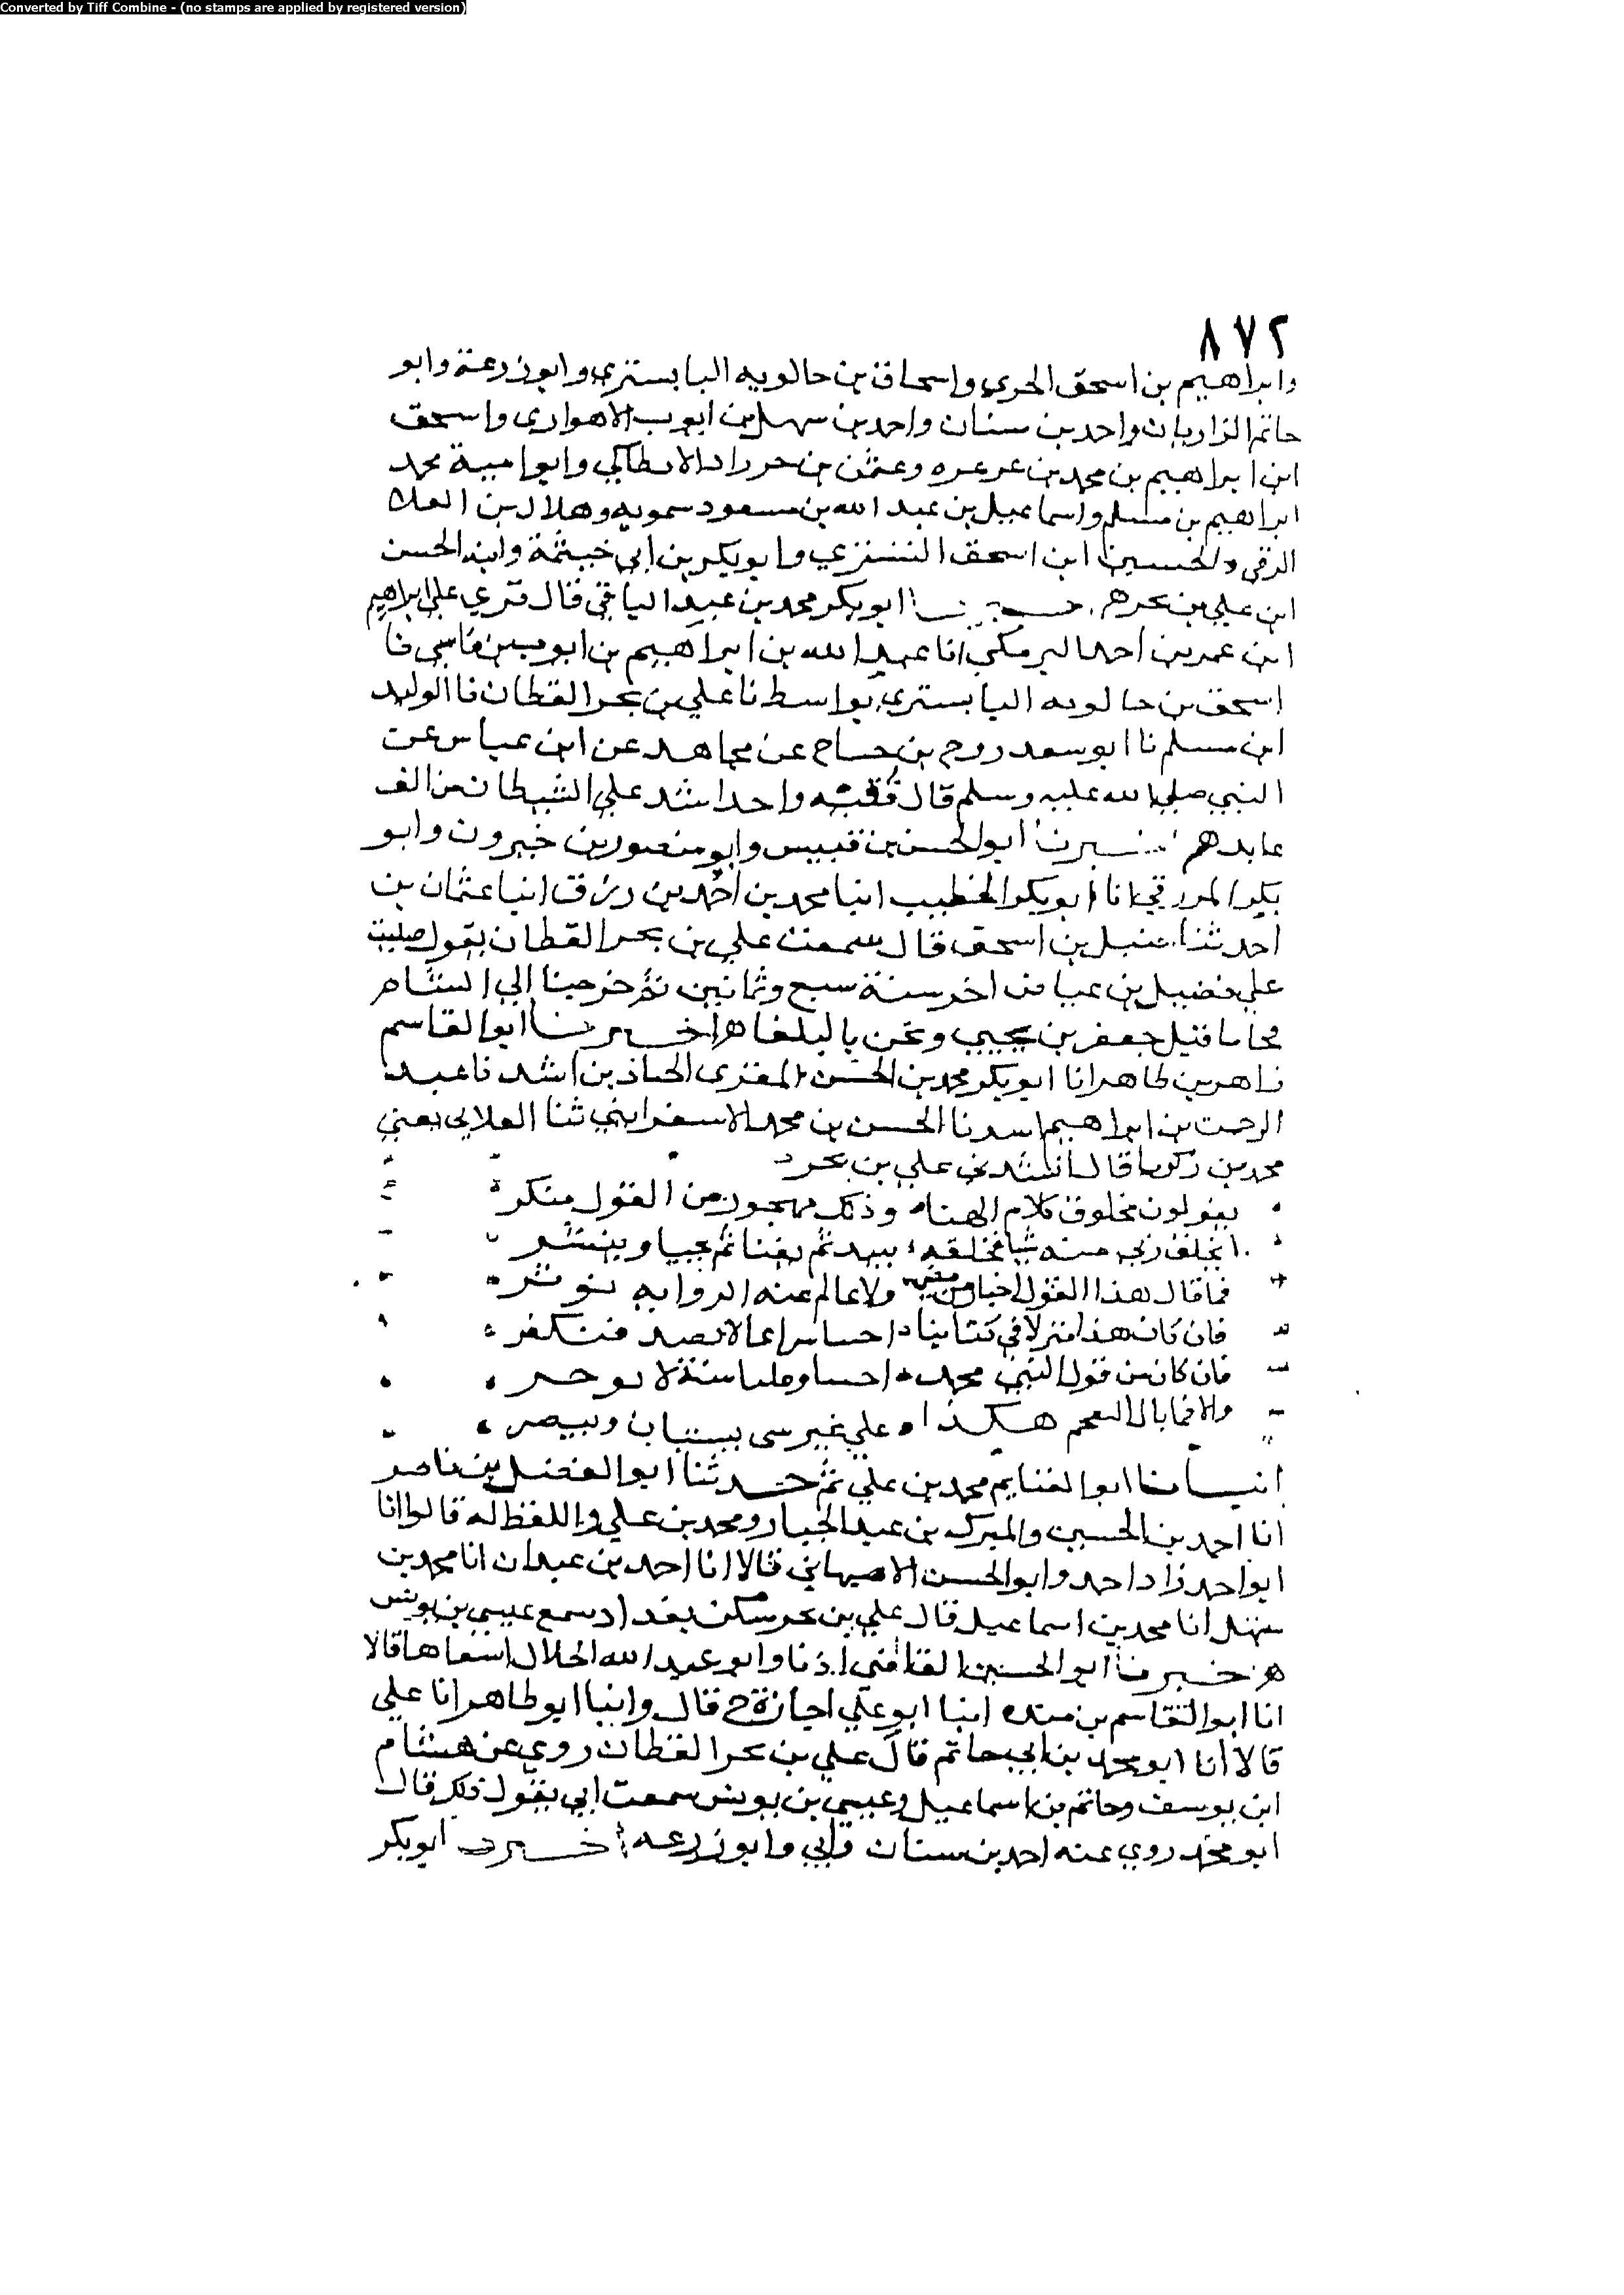 Converted by Tiff Combine - (no stamps are applied by registered version)
٨٧٢
وابراهيم بن اسحق الحربي واسحاق بن حالويه البابستري وابوزرعة وابو
حاتم الرازيان واحمد بن سنان واحمد بن سهل بن ايوب الاهوازي واسحق
ابن ابراهيم بن محمد بن عرعره وعثمن بن حرزاد الانطاكي وابوامية محمد
ابراهيم بن مسلم واسماعيل بن عبد الله بن مسعود سمويه وهلال بن العلا
الرقي والحسين ابن اسحق التستري وابوبكر بن ابي خيثمة وابنه الحسن
ابن علي بن بحر ابوبكر محمد بن عبد الباقي قال قري علي ابراهيم
ابن عمر بن احمد البرمكي انا عبد الله بن ابراهيم بن ايوب بن ماسي نا
اسحق بن حالويه البابستري بواسط نا علي بن بحر القطان نا الوليد
ابن مسلم نا ابوسعد روح بن جناح عن مجاهد عن ابن عباس عن
النبي صلي الله عليه وسلم قال فقيه واحد اشد علي الشيطان من الف
عابد ابوالحسن بن قبيس وابو منصور بن خيرون وابو
بكر المزرقي انا ابوبكر الخطيب انبا محمد بن احمد بن رزق انبا عثمان بن
احد ثنا حنبل بن اسحق قال سمعت علي بن بحر القطان يقول صليت
علي فضيل بن عياض اخر سنة سبع وثمانين ثم خرجنا الي الشام
فجانا قتيل جعفر بن يحيي ونحن بالبلقا اخبرنا ابوالقاسم
زاهر بن طاهر انا ابوبكر محمد بن الحسن المقري انشدنا عبد
الرحمن بن ابراهيم الحسن بن محمد الاسفرايني ثنا الغلابي يعني
محمد بن زكريا قال انشدني علي بن بحر
يقولون مخلوق كلام الهنا وذلك مهجور من القول منكر
ايخلق ربي منه شيا يخلقه يبيد ثم يفنا ثم يحيا وينشر
فما قال هذا القول اخيار ولا عالم عنه الرواية توثر
فان كان هذا منزلا في كتابنا
فان كان من قول النبي محمد
والا فما بال هكذا علي غير يستبان ويبصر
انبانا ابوالغنايم محمد بن علي ثم حدثنا ابوالفضل بن ناصر
انا احمد بن الحسين والمبرك بن عبد الجبار ومحمد بن علي واللفظ له قالوا انا
ابواحمد زاد احمد وابوالحسن الاصبهاني قالا انا احمد بن عبدان انا محمد بن
سهل انا محمد بن اسماعيل قال علي بن بحر سكن بغداد سمع عيسي بن يونس
اخبرنا ابوالحسين القاضي اذنا وابوعبد الله الخلال قالا
انا ابوالقاسم بن منده انبا ابوعلي اجازة ح قال وانبا ابوطاهر انا علي
قالا انا ابومحمد بن ابي حاتم قال علي بن بحر القطان روي عن هشام
ابن يوسف وحاتم بن اسماعيل وعيسي بن يونس سمعت ابي يقول ذلك قال
ابو محمد روي عنه احمد بن سنان وابي وابوزرعه اخبرنا ابوبكر